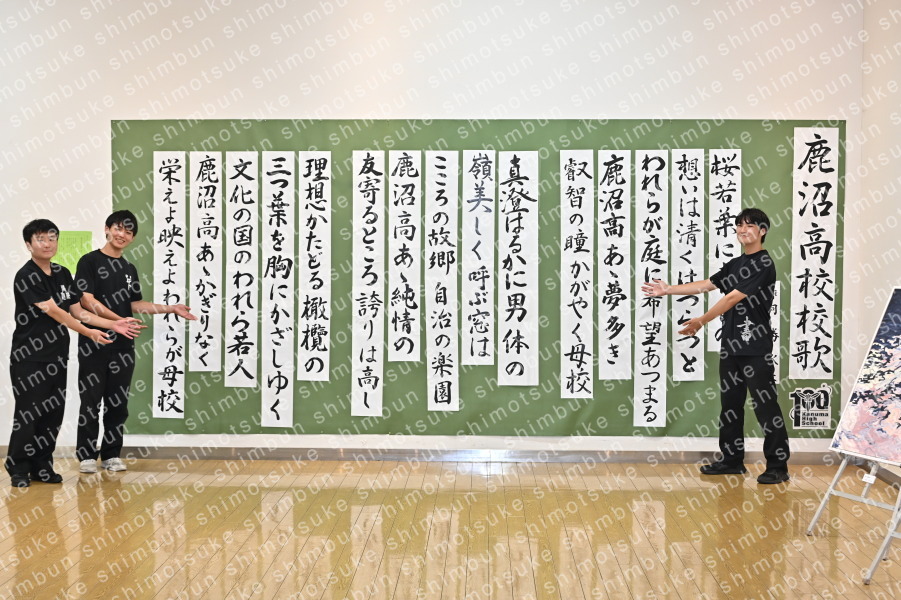 鹿沼高校校歌
桜若葉に
想いは清くはつらつと
われらが庭に希望あつまる
鹿沼高あゝ夢多き
叡智の瞳かがやく母校
真澄はるかに男体の
嶺美しく呼ぶ窓は
こころの故郷自治の楽園
鹿沼高あゝ純情の
友寄るところ誇りは高し
理想かたどる橄欖の
三つ葉を胸にかざしゆく
文化の国のわれら若人
鹿沼高あゝかぎりなく
栄えよ映えよわれらが母校
100
Kanuma
High
School
shimotsuke shimbun